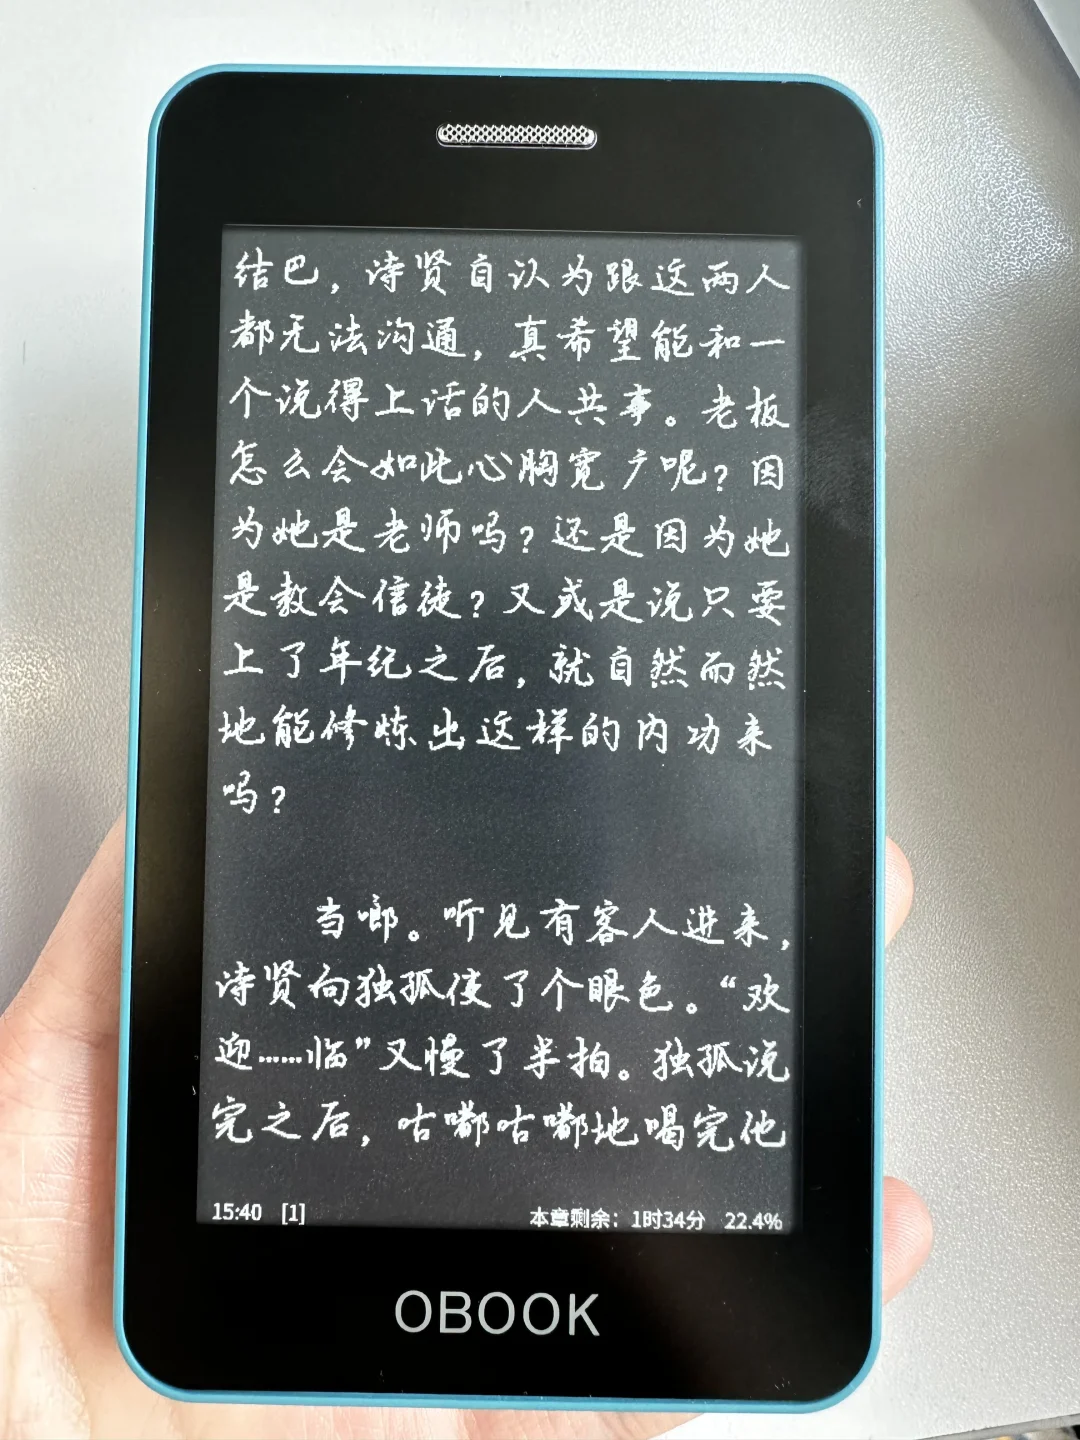 结巴，诗贤自认为跟这两人
都无法沟通，真希望能和一
个说得上话的人共事。老板
怎么会如此心胸宽广呢？因
为她是老师吗？还是因为她
是教会信徒？又或是说只要
上了年纪之后，就自然而然
地能修炼出这样的内功来
吗？
当啷。听见有客人进来，
诗贤向独孤使了个眼色。“欢
迎……临”又慢了半拍。独孤说
完之后，咕嘟咕嘟地喝完他
15:40 [1] 本章剩余：1时34分 22.4%
OBOOK